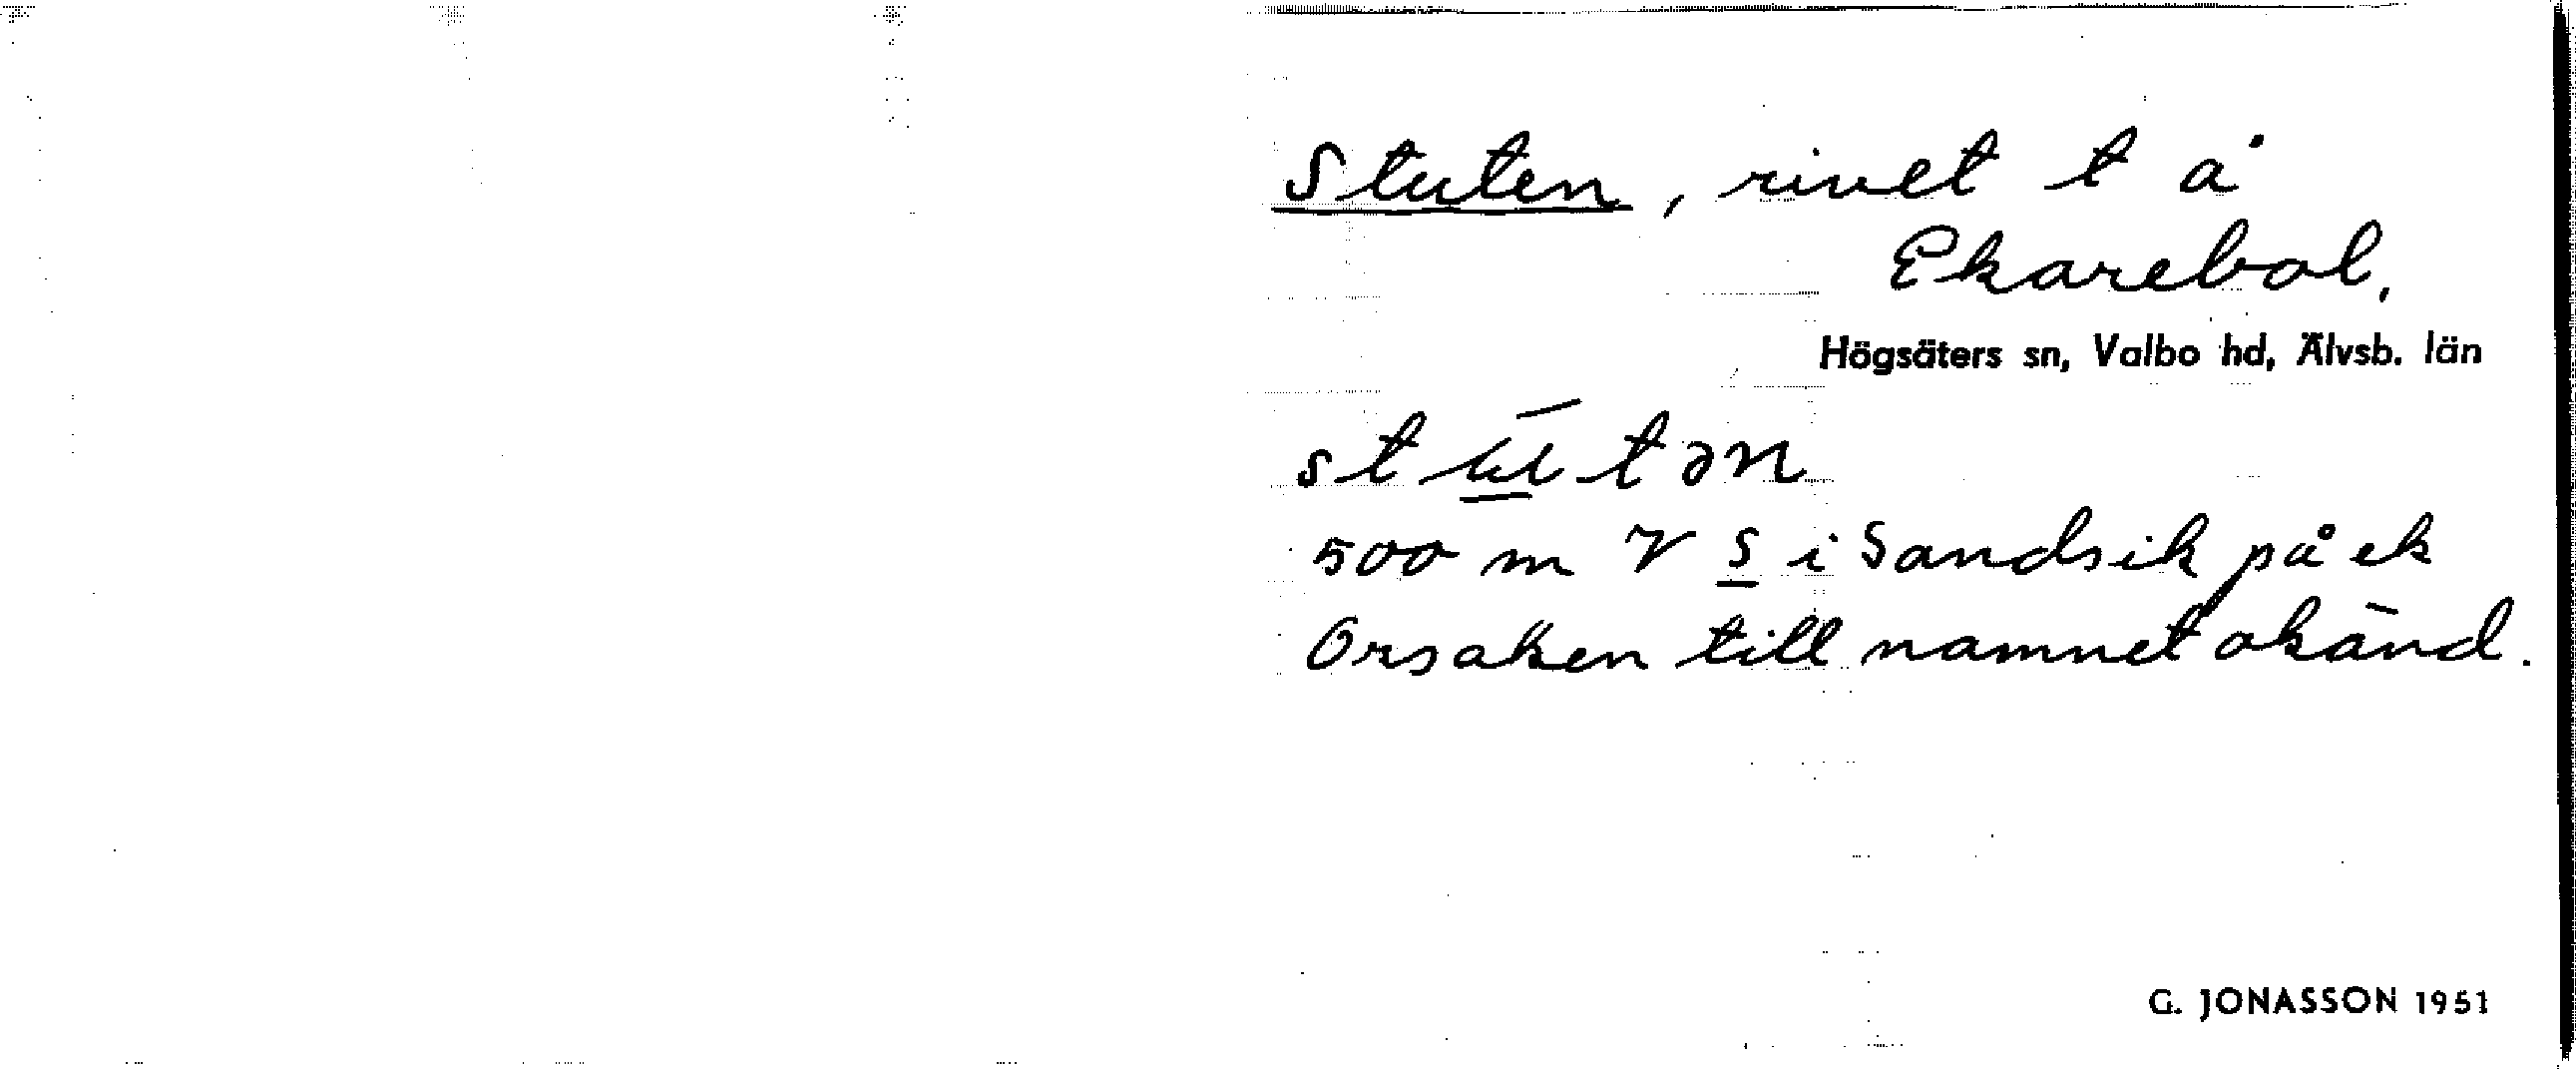 Stuten, rivet t å
Ekarebol,
Högsäters sn, Valbo hd, Älvsb. län
stūtən
500 m V S i Sandsik på ek
Orsaken till namnet okänd.
G. JONASSON 1951